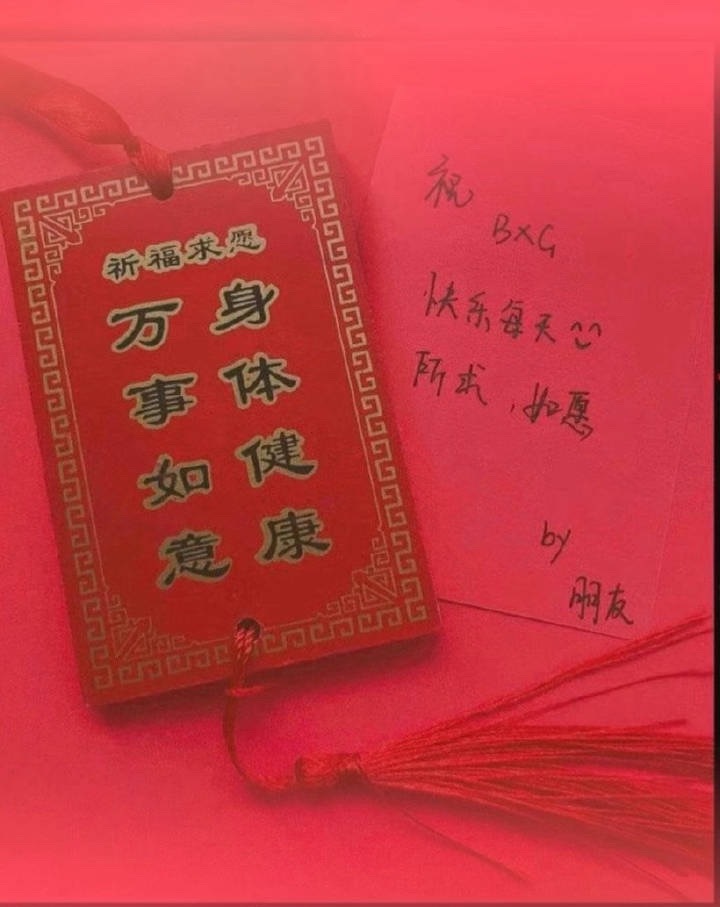 祈福求愿
身体健康
万事如意
祝
BXG
快乐每天
所求，如愿
by
朋友